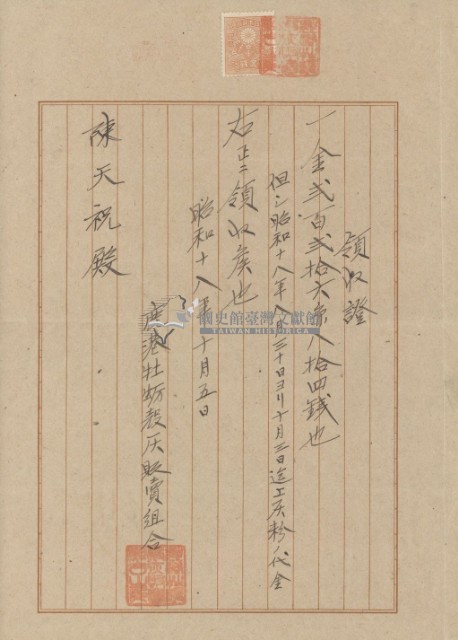 領収證
一金弐百弐拾六円八拾四銭也
但シ昭和十八年八月三十日ヨリ十月三日迄工灰粉ノ代金
右正ニ領収候也
昭和十八年十月五日
鹿港牡蛎殻灰販賣組合
陳天祝殿
國史館臺灣文獻館
TAIWAN HISTORICA